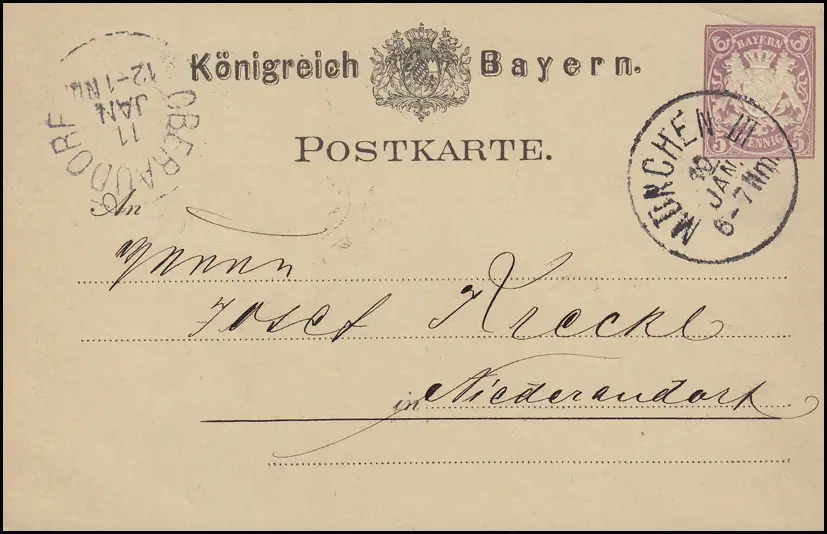 Königreich Bayern.
BAYERN
5 PFENNIG 5
POSTKARTE.
OBERAUDORF
11
JAN
12-1 Nm.
MÜNCHEN III
10
JAN.
6-7 Nm.
An
Herrn
Josef Kreckl
in Niederaudorf